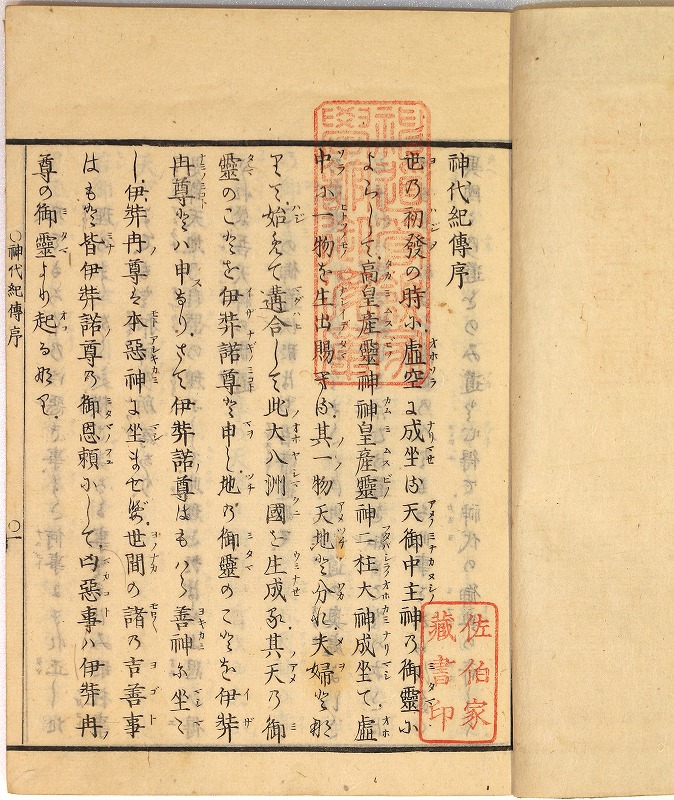 神代紀傳序
世乃初發の時尓虚空に成坐る天御中主神乃御靈尓
よらしして高皇産靈神神皇産靈神二柱大神成坐て虚
中尓一物を生出賜
其一物天地と分れ夫婦と那
りて始めて遘合して此大八洲國を生成
其天乃御
靈のことを伊弉諾尊と申し地乃御靈のことを伊弉
冉尊とハ申
さて伊弉諾尊はもハら善神尓坐
し伊弉冉尊
本惡神に坐ませ
世間の諸乃吉善事
はもと皆伊弉諾尊乃御恩頼尓して凶惡事ハ伊弉冉
尊の御靈より起る那り
〇神代紀傳序
〇一
佐伯家
藏書印